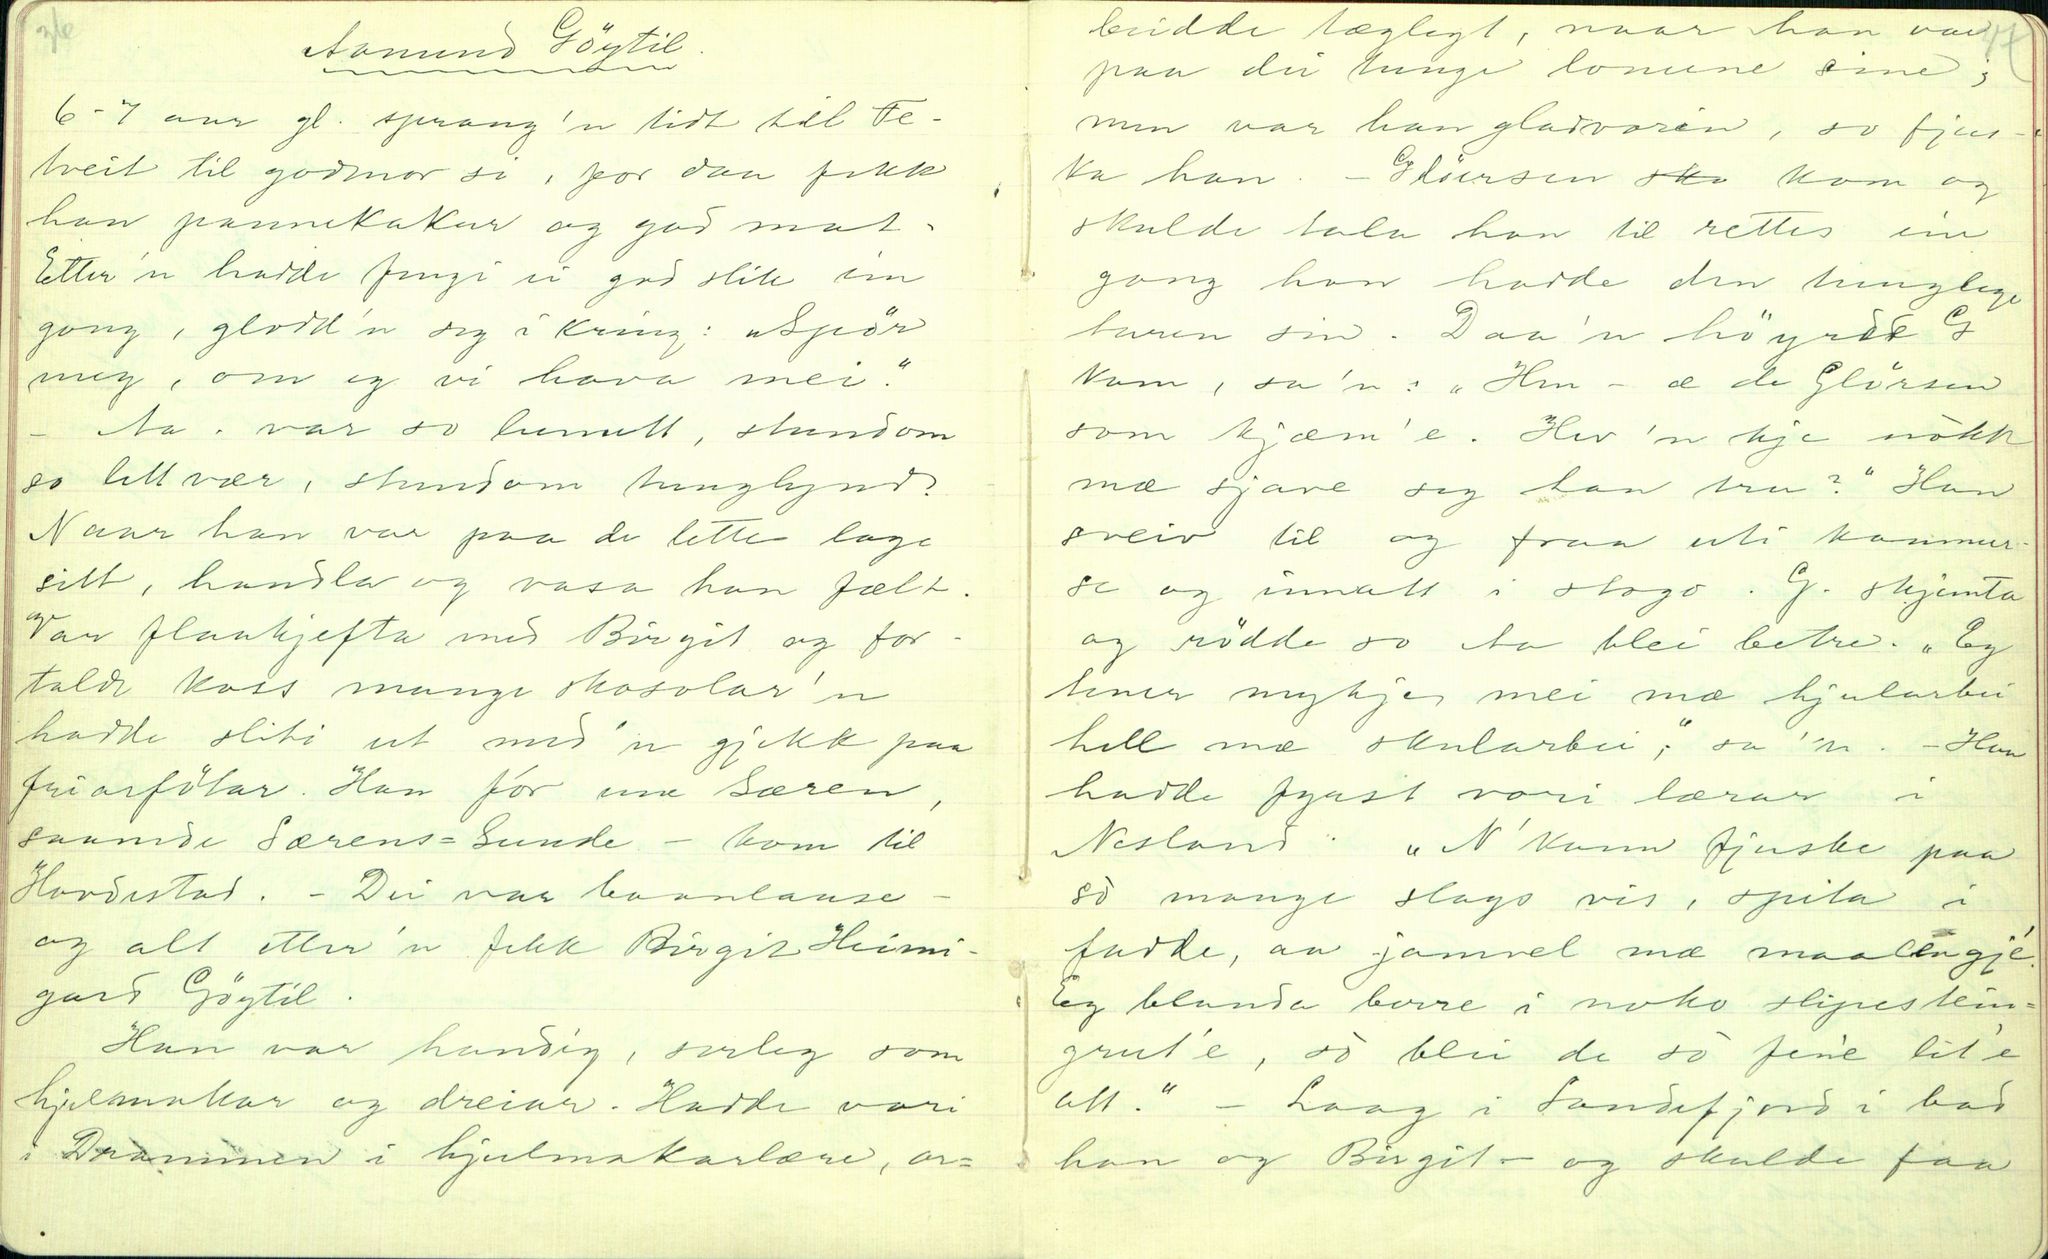 Aamund Göytil.
6-7 aar gl. sprang'n tidt til Fe-
tveit til godmor si, for daa fekk
han pannekakur og god mat.
Etter'n hadde fengi ei god slik ein
gong, glodd'n seg i kring: "Spör
meg, om eg vi hava mei."
- Aa. var so lunutt, stundom
so lettvær, stundom tunglynd.
Naar han var paa de lette laget
sitt, handla og vasa han fælt.
Var flaakjefta med Birgit og for-
talde koss mange skosolar'n
hadde sliti ut med'n gjekk paa
friarfötar. Han fór um Særen,
saamde Særens-Sunde - kom til
Hovdestad. - Dei var baanlause -
og alt etter'n fekk Birgit Heimi-
gard Göytil.
Han var handig, serleg som
hjulmakar og dreiar. Hadde vori
i Drammen i hjulmakarlære, ar=
47
beidde tægleg, naar han var
paa dei tunge lonune sine;
men var han gladvoren, so fjus-
ka han. - Glöersen sko kom og
skulde tala han til rettes ein
gong han hadde den tunglege
turen sin. Daa'n höyrde G
kom, sa'n: "Hm - æ de Glörsen
som kjæm'e. Hev'n kje nökk
mæ sjave seg han tru?" Han
sveiv til og fraa uti kammer-
se og innatt i stogo. G. skjemta
og rödde so Aa blei betre. "Eg
tener mykje mei mæ hjularbei
hell mæ skularbei," sa'n. - Han
hadde fyrst vori lærar i
Nesland. "N'kann fjuske paa
sö mange slags vis, spita i
fudde, aa jamvel mæ maalingje.
Eg blanda berre i noko slipestein=
grut'e, sö blei de sö fin'e lit'e
att." - Laag i Sandefjord i bad
han og Birgit - og skulde faa